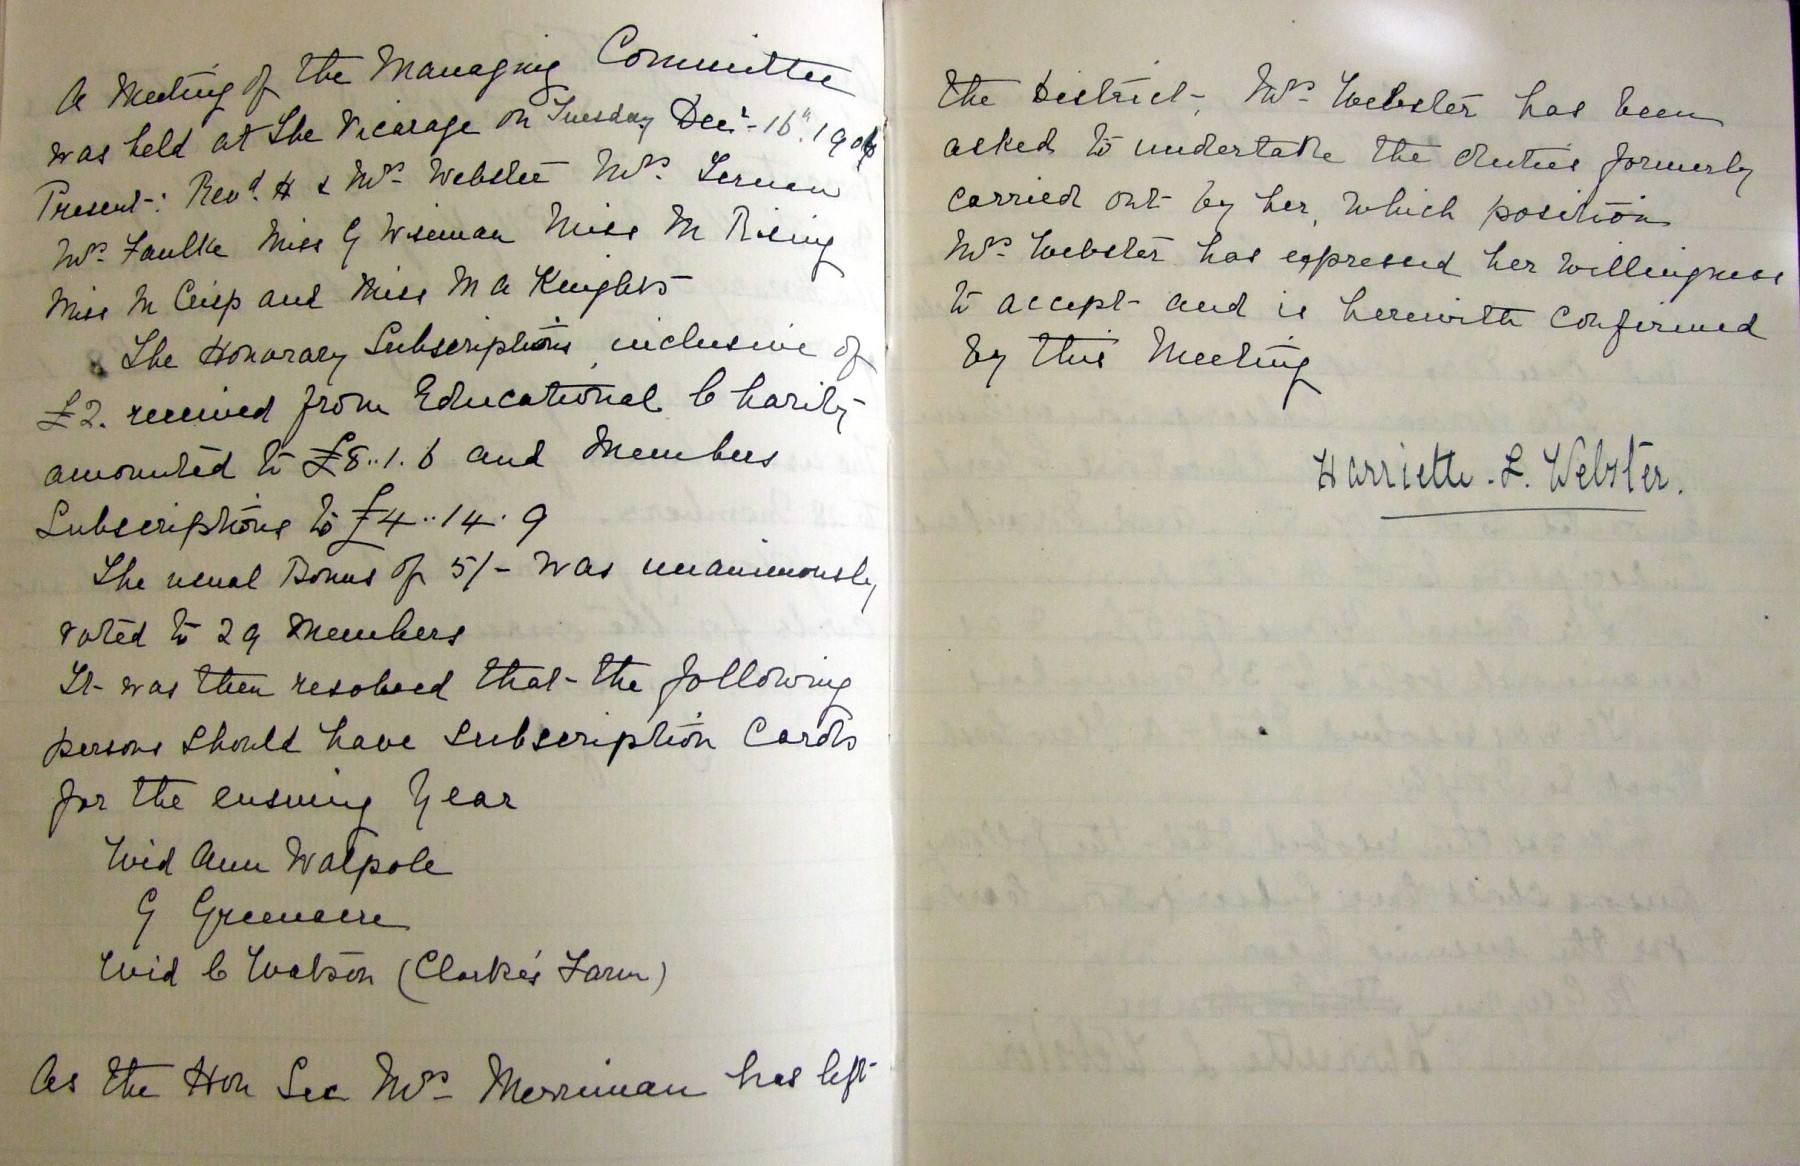 A Meeting of the Managing Committee
was held at The Vicarage on Tuesday Decr. 16th. 190
Present:- Revd. H & Mrs Webster Mrs.
Mrs. Faulke Miss G Wiseman Miss M Rising
Miss M Crisp and Miss M A Knights
The Honorary Subscriptions inclusive of
£2. received from Educational Charity
amounted to £8..1.6 and Members
Subscriptions to £4..14.9
The usual Bonus of 5/- was unanimously
voted to 29 Members
It was then resolved that the following
persons should have Subscription Cards
for the ensuing Year
Wid Ann Walpole
G Greenacre
Wid C Watson (Clarke's Farm)
As the Hon Sec Mrs Merriman has left
the District, Mrs Webster has been
asked to undertake the duties formerly
carried out by her, which position
Mrs Webster has expressed her willingness
to accept and is herewith confirmed
by this Meeting
Harriette. L. Webster.